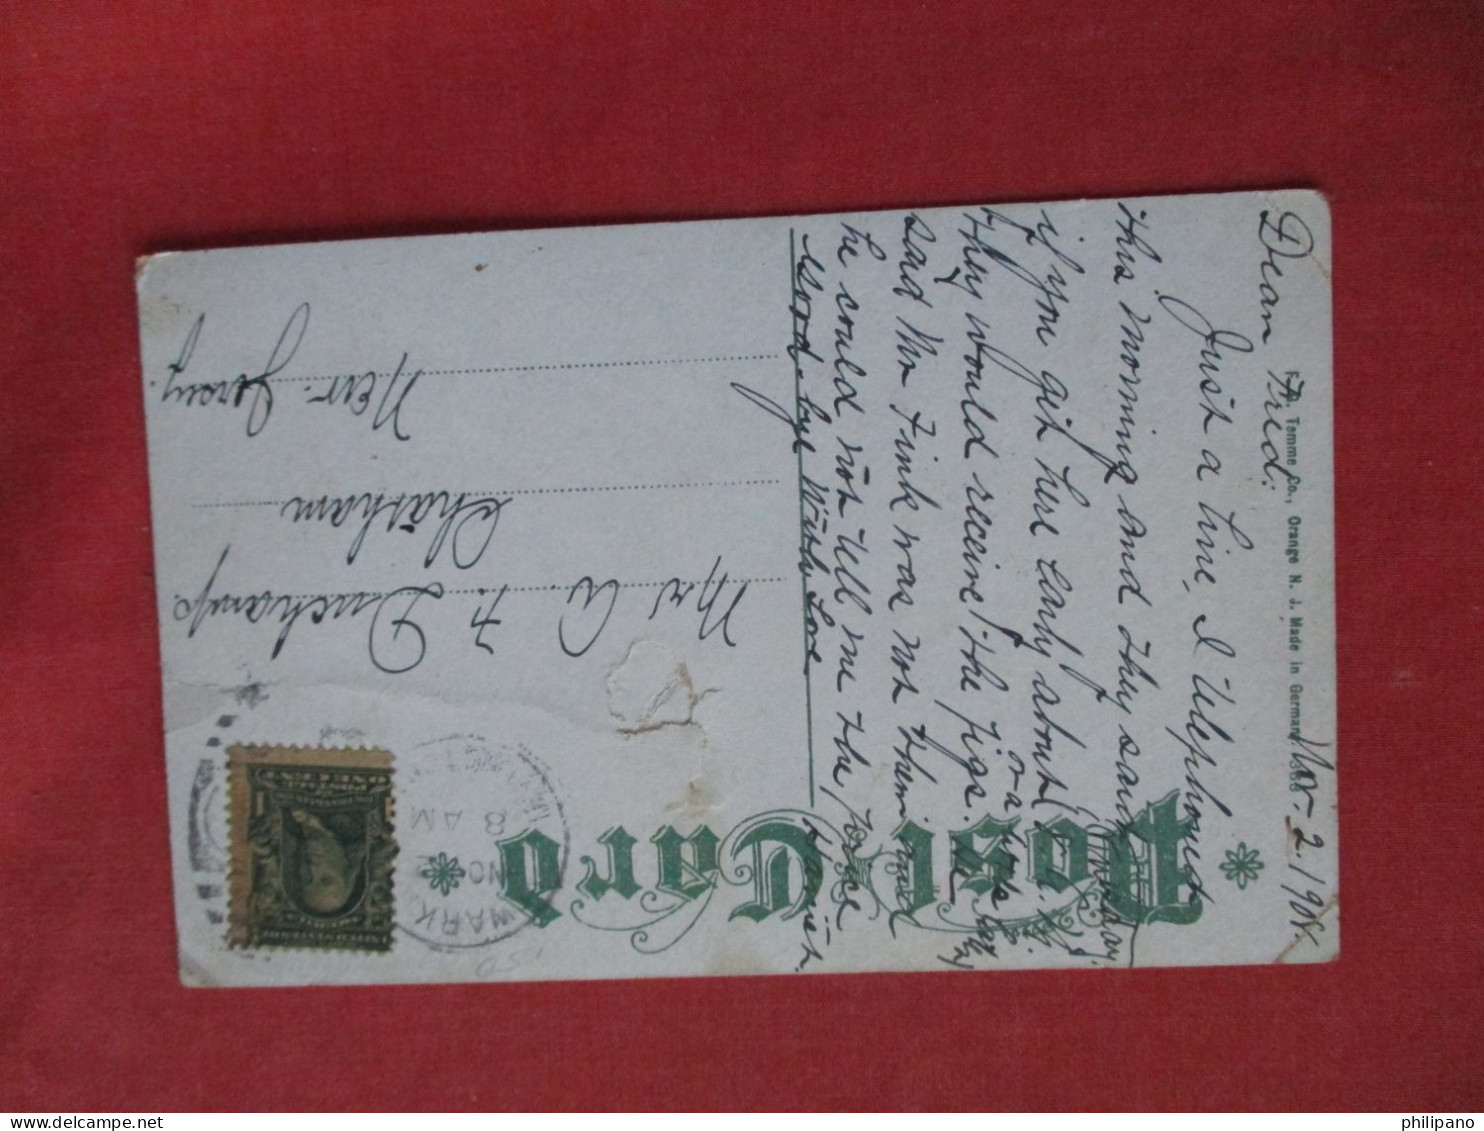 Post Card
F. A. Temme Co., Orange N. J. Made in Germany.
Nov. 2. 190
Dear Fred:
Just a line, I telephoned
this morning and they said
if you get here early about
(Monday)
they would receive the figs. He
said Mr Fink was not there and
he could not tell me the price
Good-bye With Love
Mr A. F. Duchamp
Chatham
New Jersey.
8 AM
NO
WARK
ONE CENT
1
philipano